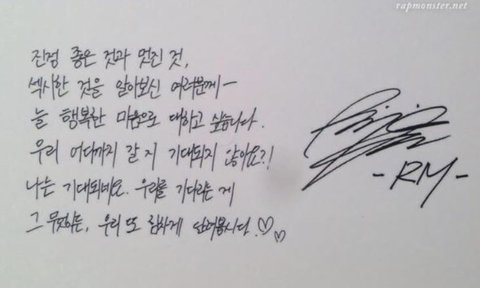 rapmonster.net
진정 좋은 것과 멋진 것,
섹시한 것을 알아보신 여러분께―
늘 행복한 마음으로 대하고 싶습니다.
우리 어디까지 갈 지 기대되지 않아요?!
나는 기대되네요. 우리를 기다리는 게
그 무엇이든, 우리 또 힘차게 던져봅시다.♡♡
-RM-